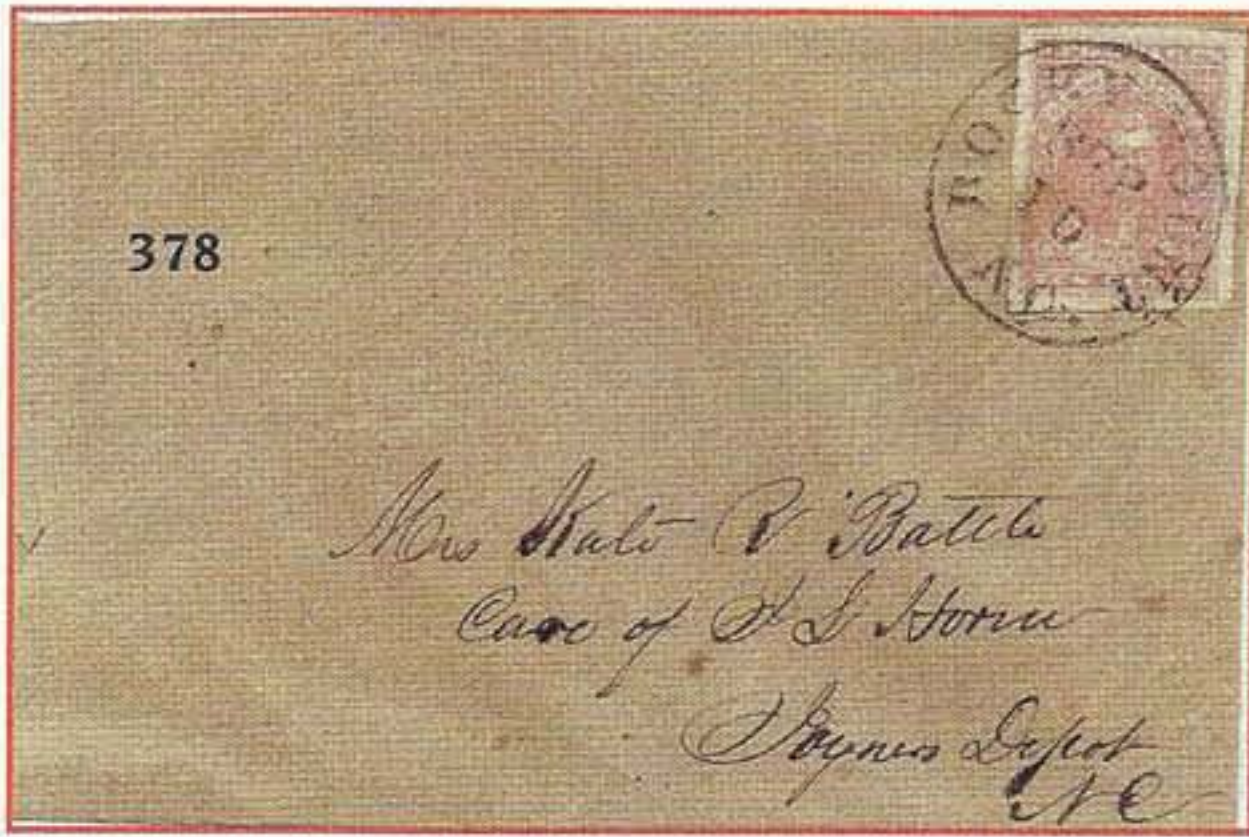 378
ROCKY MOUNT
N.C.
10
Mrs Kate R Battle
Care of L Horne
Joyners Depot
N C